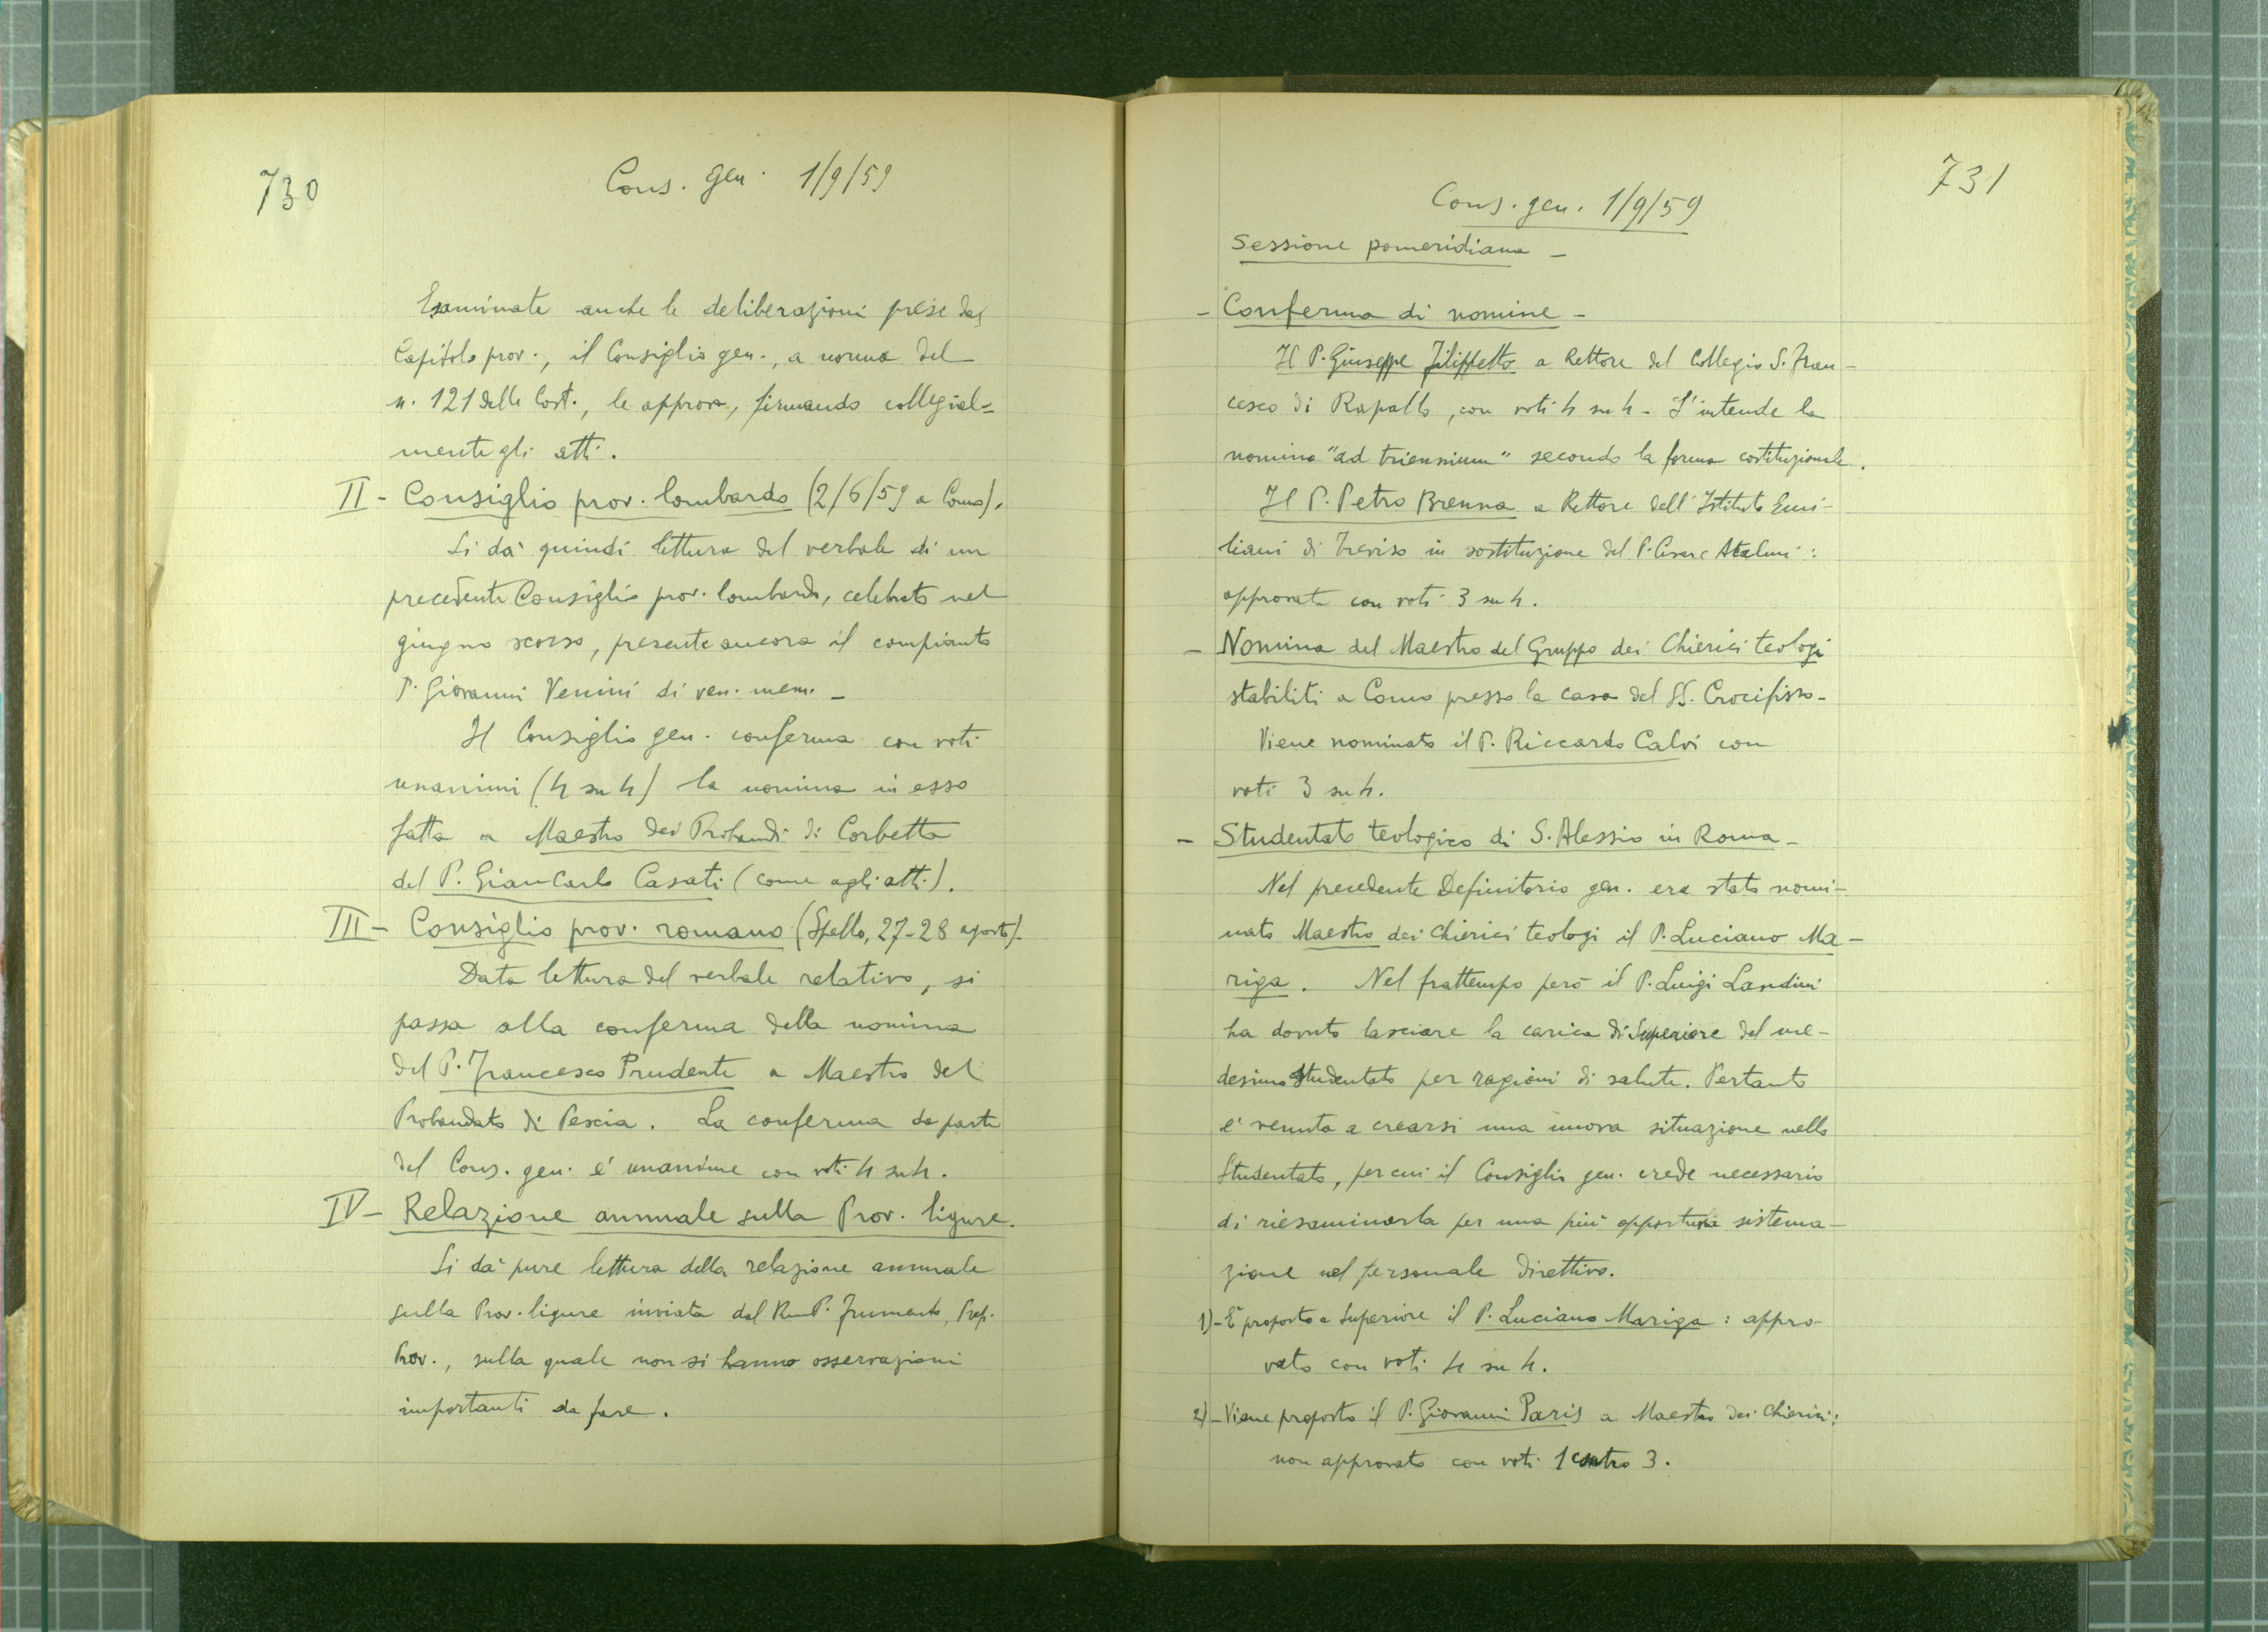 730
Cons. gen. 1/9/59
Esaminate anche le deliberazioni prese dal
Capitolo prov., il Consiglio gen., a norma del
n. 121 delle Cost., le approva, firmando collegial=
mente gli atti.
II - Consiglio prov. lombardo (2/6/59 a Como).
Si dà quindi lettura del verbale di un
precedente Consiglio prov. lombardo, celebrato nel
giugno scorso, presente ancora il compianto
P. Giovanni Venini di ven. mem. -
Il Consiglio gen. conferma con voti
unanimi (4 su 4) la nomina in esso
fatta a Maestro dei Probandi di Corbetta
del P. GianCarlo Casati (come agli atti).
III - Consiglio prov. romano (Spello, 27-28 agosto) -
Data lettura del verbale relativo, si
passa alla conferma della nomina
del P. Francesco Prudente a Maestro del
Probandato di Pescia. La conferma da parte
del Cons. gen. è unanime con voti 4 su 4.
IV - Relazione annuale sulla Prov. ligure.
Si dà pure lettura della relazione annuale
sulla Prov. ligure inviata dal Rev. P. Frumento, Prep.
Prov., sulla quale non si hanno osservazioni
importanti da fare.
731
Cons. gen. 1/9/59
Sessione pomeridiana -
- Conferma di nomine -
Il P. Giuseppe Filippetto a Rettore del Collegio S. Fran-
cesco di Rapallo, con voti 4 su 4 - S'intende la
nomina "ad triennium" secondo la forma costituzionale.
Il P. Petro Brenna a Rettore dell'Istituto Emi-
liani di Treviso in sostituzione del P. Cesare :
approvato con voti 3 su 4.
- Nomina del Maestro del Gruppo dei Chierici teologi
stabiliti a Como presso la casa del SS. Crocifisso -
Viene nominato il P. Riccardo Calvi con
voti 3 su 4.
- Studentato teologico di S. Alessio in Roma -
Nel precedente Definitorio gen. era stato nomi-
nato Maestro dei Chierici teologi il P. Luciano Ma-
riga. Nel frattempo però il P. Luigi Landini
ha dovuto lasciare la carica di Superiore del me-
desimo Studentato per ragioni di salute. Pertanto
è venuta a crearsi una nuova situazione nello
Studentato, per cui il Consiglio gen. crede necessario
di riesaminarla per una più opportuna sistema-
zione nel personale direttivo.
1) - È proposto a Superiore il P. Luciano Mariga : appro-
vato con voti 4 su 4.
2) - Viene proposto il P. Giovanni Paris a Maestro dei Chierici:
non approvato con voti 1 contro 3.